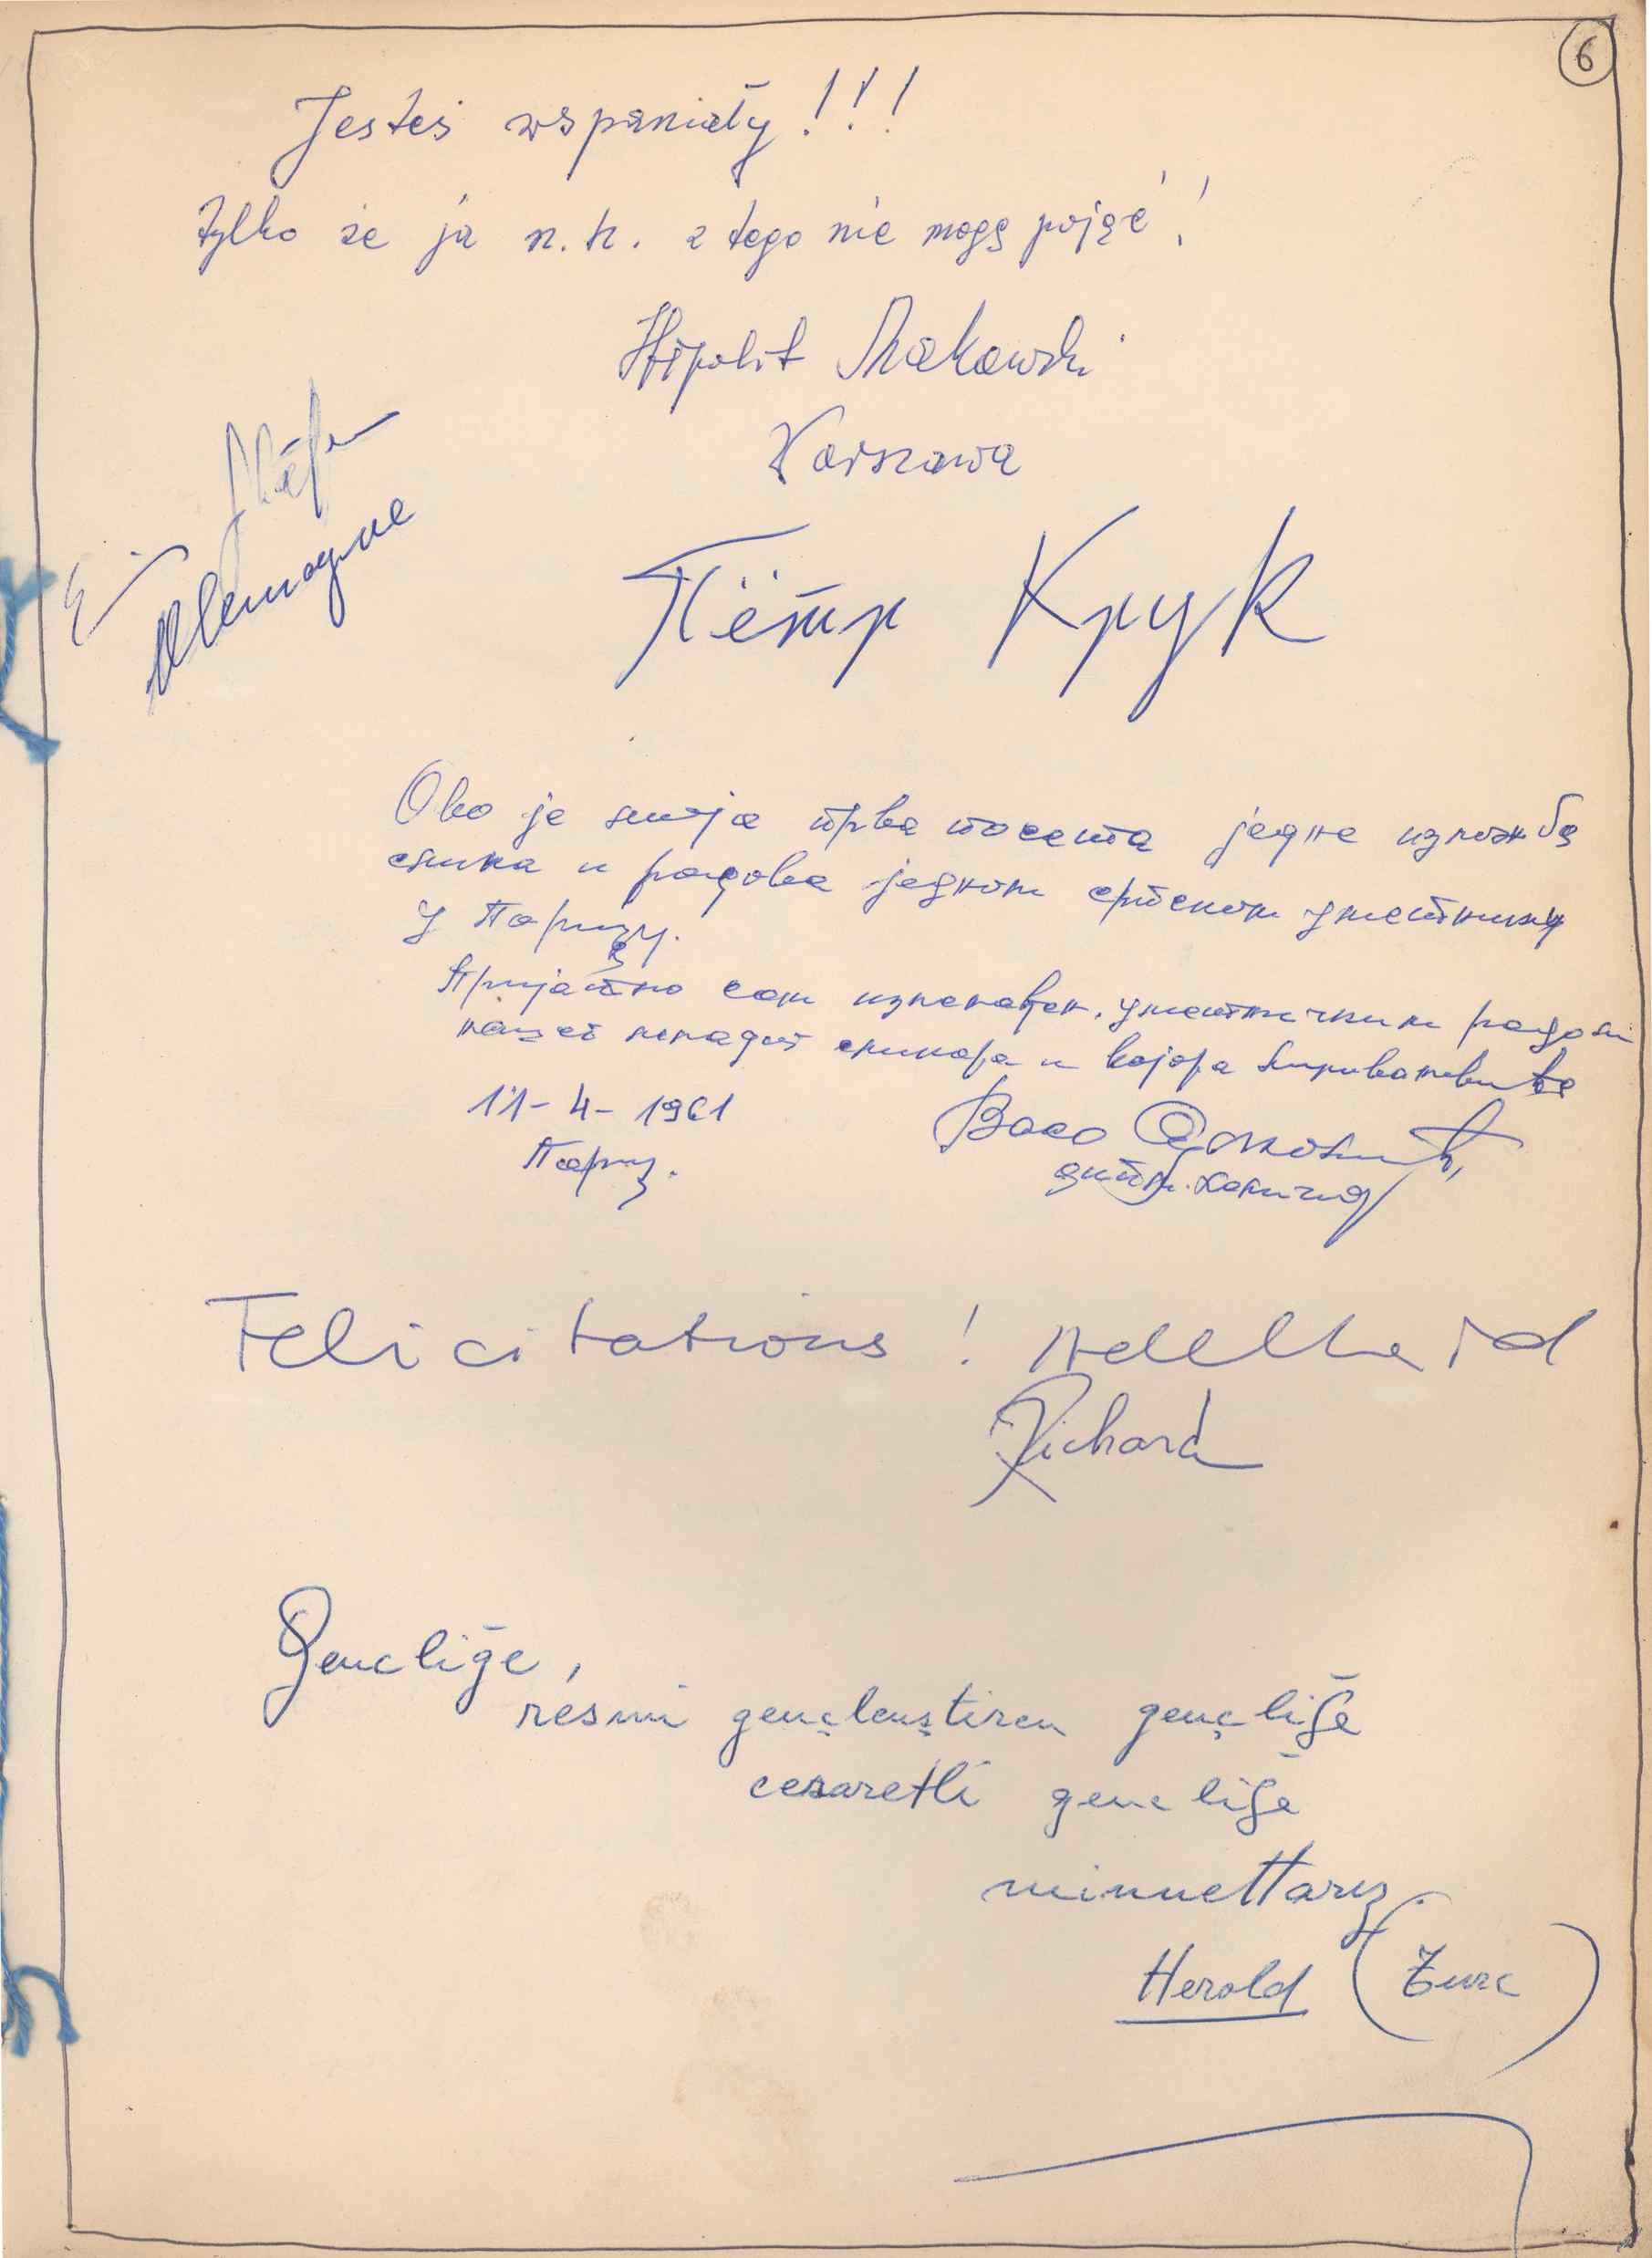 6
Jesteś wspaniały!!!
tylko że ja n. h. z tego nie mogę pojąć!
Hipolit Makowski
Warszawa
Allemagne
Пётр Крук
Ово је моја прва посета једне изложбе
слика и радова једном српском уметнику
у Паризу.
Пријатно сам изненађен, уметничким радом
нашег младог сликара и вајара
11-4-1961
Париз.
Васо
Felicitations! Adelheid
Richard
Gencliğe,
resmi gençleuştiren gençliğe
cesaretli gencliğe
minnettarız
Herold (Turc)